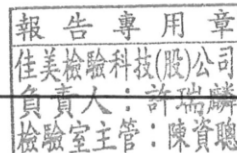 報告專用章
佳美檢驗科技(股)公司
負責人：許瑞麟
檢驗室主管：陳資聰